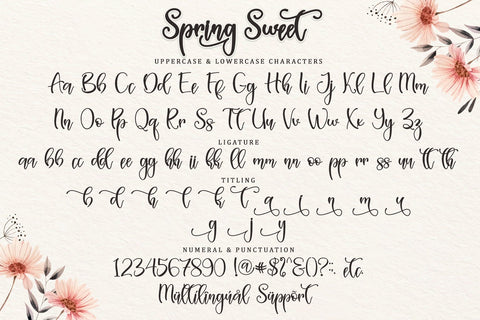 Spring Sweet
UPPERCASE & LOWERCASE CHARACTERS
Aa Bb Cc Dd Ee Ff Gg Hh Ii Jj Kk Ll Mm
Nn Oo Pp Qq Rr Ss Tt Uu Vv Ww Xx Yy Zz
LIGATURE
aa bb cc dd ee gg hh ii kk ll mm nn oo pp rr ss uu tt th
TITLING
b d h k l t
a i n m u
g j y
NUMERAL & PUNCTUATION
1234567890 !@#$%^&()?:; etc.
Multilingual Support